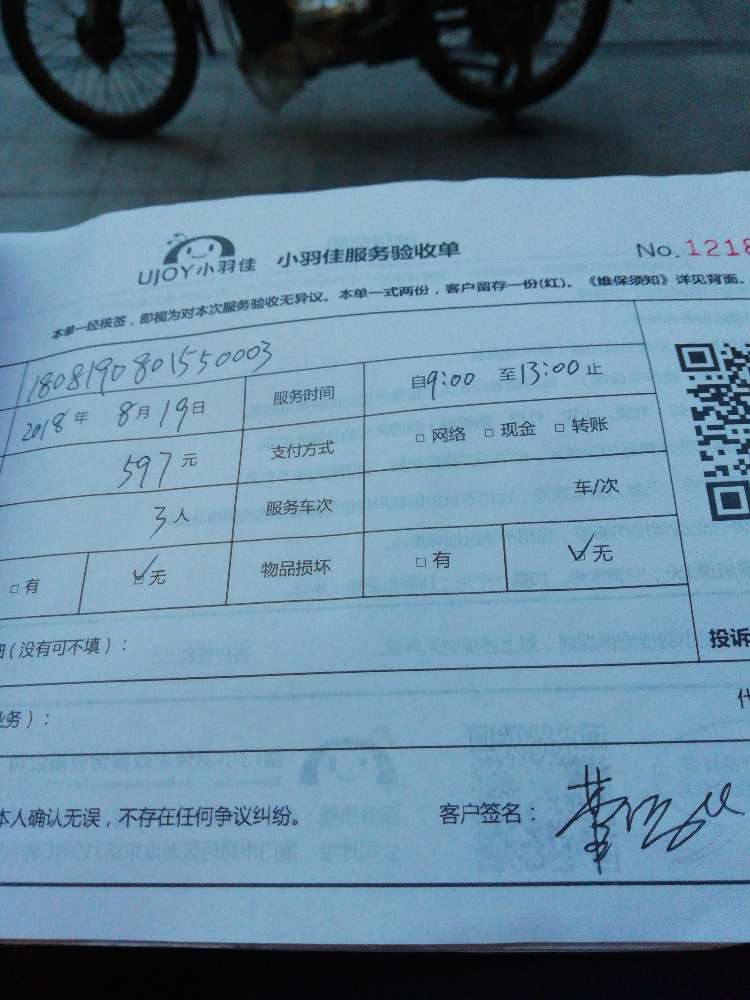 UJOY小羽佳 小羽佳服务验收单 No. 1218
本单一经核签，即视为对本次服务验收无异议。本单一式两份，客户留存一份(红)。《维保须知》详见背面。
1808190801550003 服务时间 自9:00 至13:00止
2018年 8月19日 支付方式 □网络 □现金 □转账
597元
3人 服务车次 车/次
□有 ☑无 物品损坏 □有 ☑无
(没有可不填)：
投诉
业务)：
本人确认无误，不存在任何争议纠纷。 客户签名：